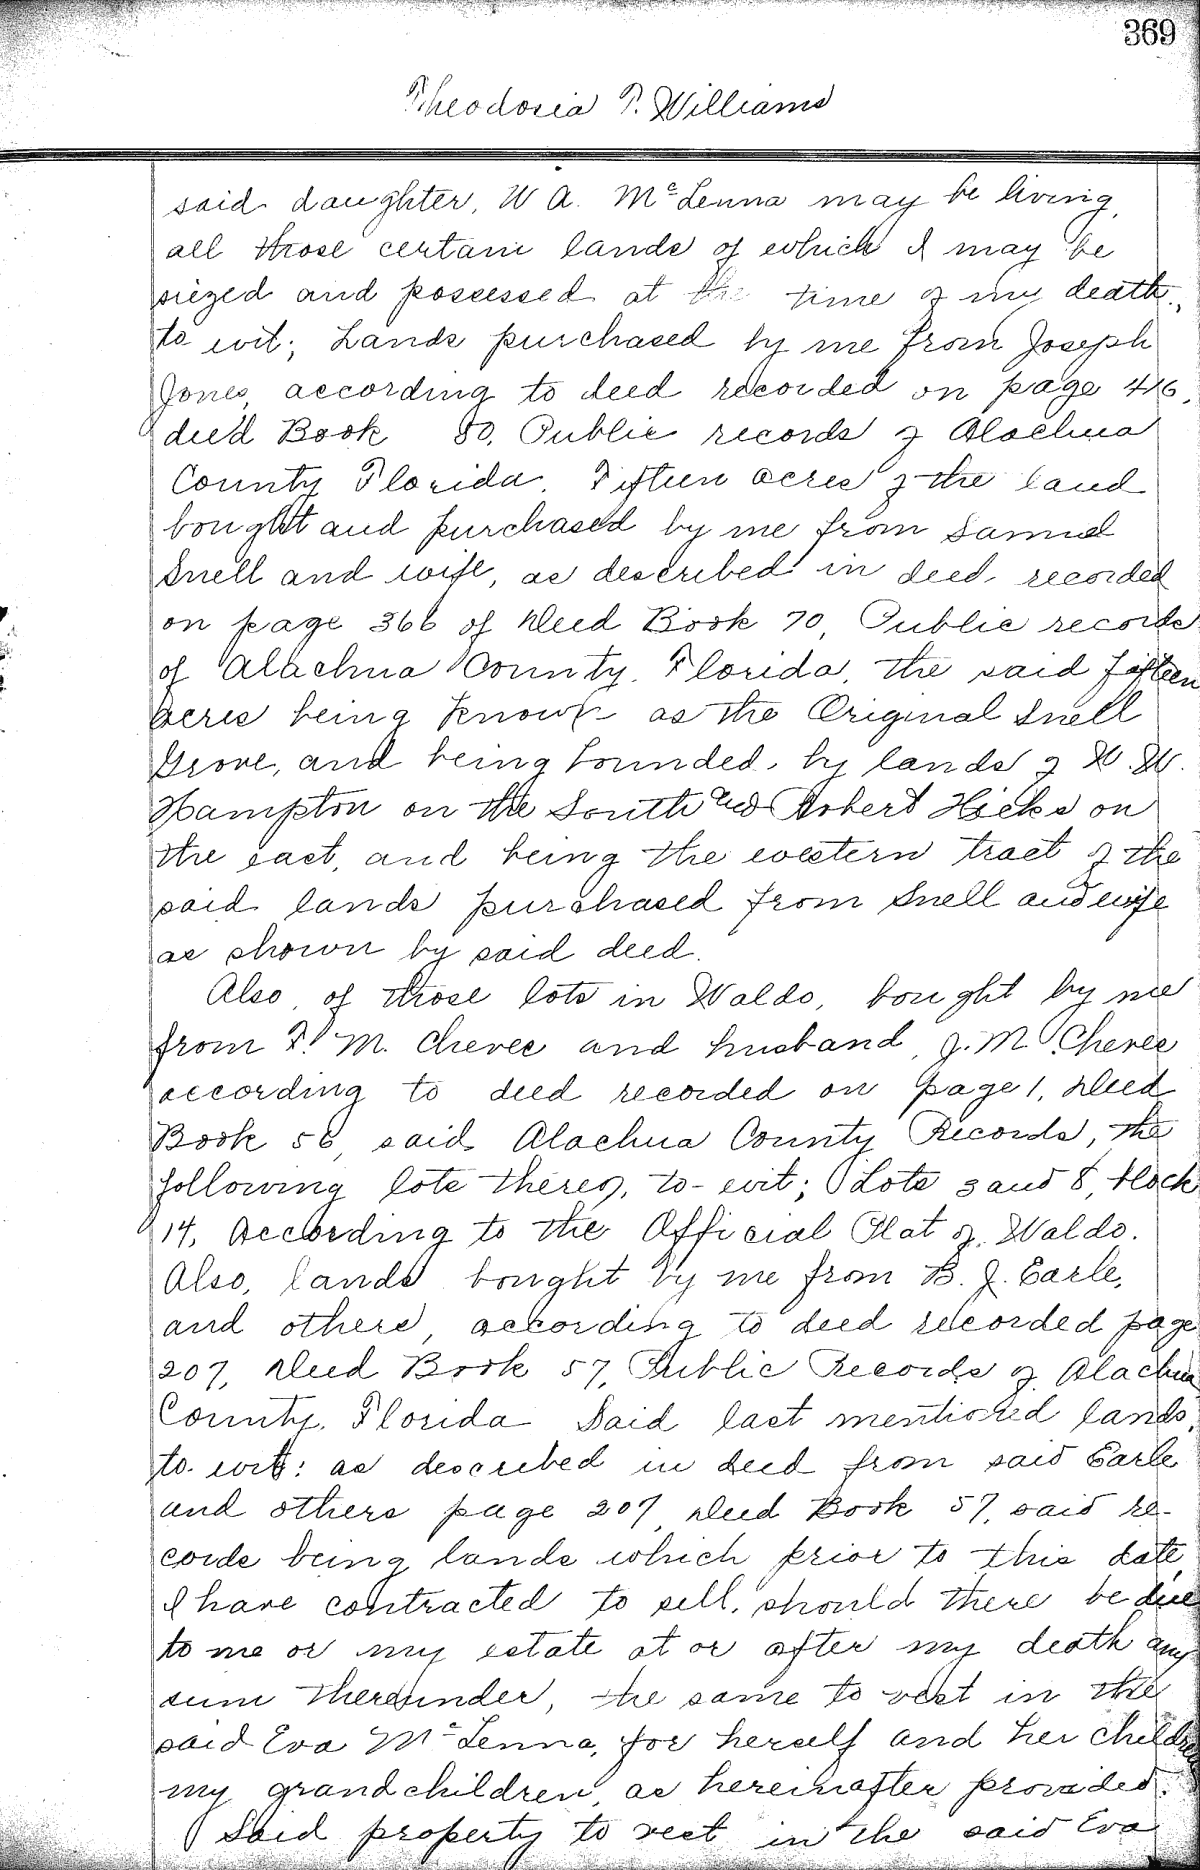 369
Theodosia T. Williams
said daughter, W A. McLenna may be living,
all those certain lands of which I may be
siezed and possessed at the time of my death,
to wit; Lands purchased by me from Joseph
Jones, according to deed recorded on page 416,
deed Book 80, Public records of Alachua
County Florida. Fifteen acres of the land
bought and purchased by me from Samuel
Snell and wife, as described in deed recorded
on page 366 of Deed Book 70, Public records
of Alachua County, Florida, the said fifteen
acres being known as the Original Snell
Grove, and being bounded, by lands of W. W.
Hampton on the South and Robert Hicks on
the east, and being the western tract of the
said lands purchased from Snell and wife
as shown by said deed.
Also, of those lots in Waldo, bought by me
from F. M. Cheves and husband, J. M. Cheves
according to deed recorded on page 1, Deed
Book 56, said Alachua County Records, the
following lots thereof, to-wit; Lots 3 and 8, block
14, According to the Official Plat of Waldo.
Also, lands bought by me from B. J. Earle,
and others, according to deed recorded page
207, Deed Book 57, Public Records of Alachua
County, Florida Said last mentioned lands,
to. wit: as described in deed from said Earle
and others page 207, Deed Book 57, said re-
cords being lands which prior to this date,
I have contracted to sell, should there be due
to me or my estate at or after my death any
sum thereunder, the same to vest in the
said Eva McLenna, for herself and her children
my grandchildren, as hereinafter provided.
Said property to vest in the said Eva